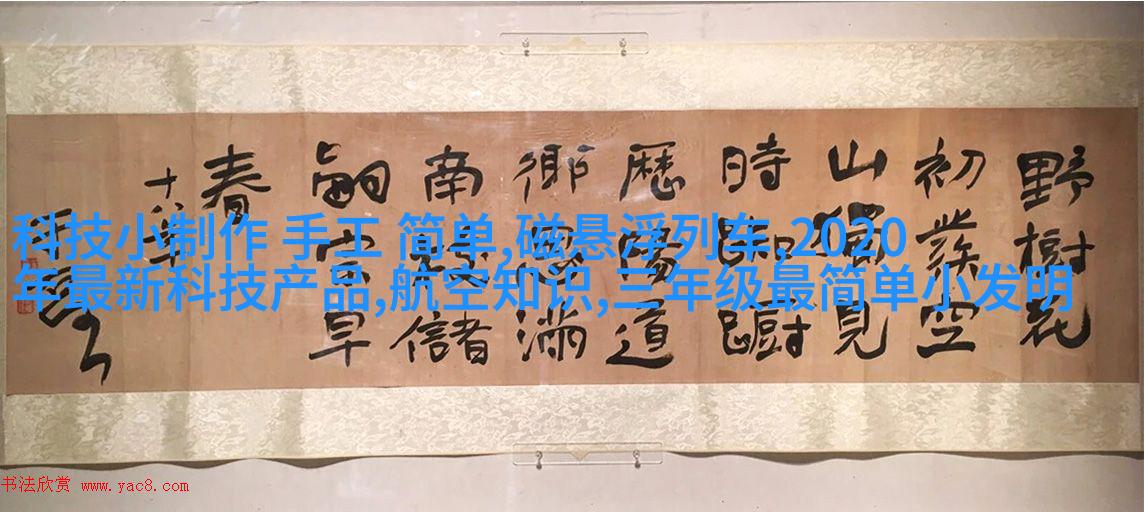 野樹花
初發空
山獨見
時踟躕
歷陽道
鄉思滿
南枝儲
嗣宗早
春
科技小制作 手工 简单,磁悬浮列车,2020
年最新科技产品,航空知识,三年级最简单小发明
书法欣赏 www.yac8.com